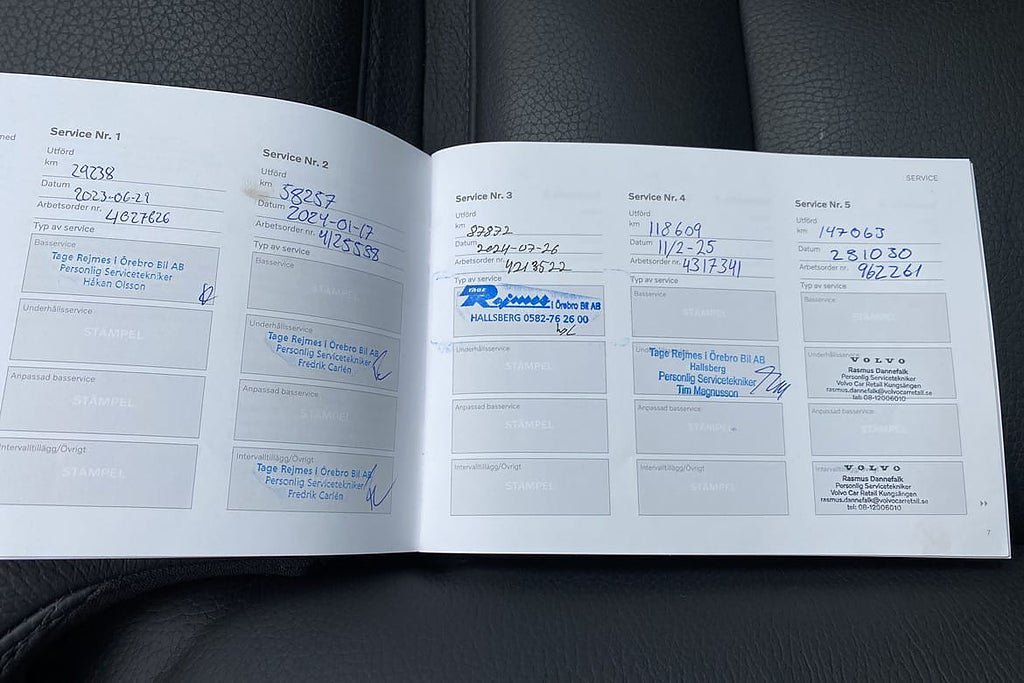 med
Service Nr. 1
Utförd
km 29238
Datum 2023-06-29
Arbetsorder nr. 4027626
Typ av service
Basservice
Tage Rejmes I Örebro Bil AB
Personlig Servicetekniker
Håkan Olsson
Underhållsservice
STÄMPEL
Anpassad basservice
STÄMPEL
Intervalltillägg/Övrigt
STÄMPEL
Service Nr. 2
Utförd
km 58257
Datum 2024-01-17
Arbetsorder nr. 4125558
Typ av service
Basservice
STÄMPEL
Underhållsservice
Tage Rejmes I Örebro Bil AB
Personlig Servicetekniker
Fredrik Carlén
Anpassad basservice
STÄMPEL
Intervalltillägg/Övrigt
Tage Rejmes I Örebro Bil AB
Personlig Servicetekniker
Fredrik Carlén
SERVICE
Service Nr. 3
Utförd
km 87872
Datum 2024-07-26
Arbetsorder nr. 4213522
Typ av service
TAGE
Rejmes I Örebro Bil AB
HALLSBERG 0582-76 26 00
Underhållsservice
STÄMPEL
Anpassad basservice
STÄMPEL
Intervalltillägg/Övrigt
STÄMPEL
Service Nr. 4
Utförd
km 118609
Datum 11/2-25
Arbetsorder nr. 4317341
Typ av service
Basservice
STÄMPEL
Tage Rejmes I Örebro Bil AB
Hallsberg
Personlig Servicetekniker
Tim Magnusson
Anpassad basservice
STÄMPEL
Intervalltillägg/Övrigt
STÄMPEL
Service Nr. 5
Utförd
km 147063
Datum 251030
Arbetsorder nr. 962261
Typ av service
Basservice
STÄMPEL
Underhållsservice
VOLVO
Rasmus Dannefalk
Personlig Servicetekniker
Volvo Car Retail Kungsängen
rasmus.dannefalk@volvocarretail.se
tel: 08-12006010
Anpassad basservice
STÄMPEL
VOLVO
Rasmus Dannefalk
Personlig Servicetekniker
Volvo Car Retail Kungsängen
rasmus.dannefalk@volvocarretail.se
tel: 08-12006010
7